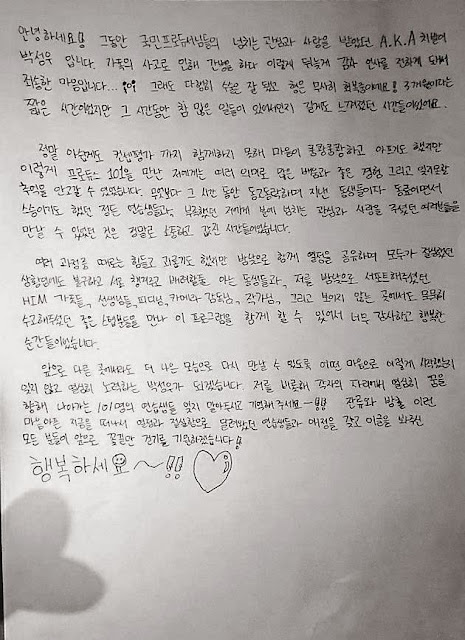 안녕하세요! 그동안 국민프로듀서님들의 넘치는 관심과 사랑을 받았던 A.K.A 처범이
박성우 입니다. 가족의 사고로 인해 간병을 하다 이렇게 뒤늦게 감사 인사를 전하게 되어
죄송한 마음입니다... 그래도 다행히 수술은 잘 됐고 형은 무사히 회복중이에요! 3개월이라는
짧은 시간이었지만 그 시간동안 참 많은 일들이 있어서인지 길게도 느껴졌던 시간들이었어요.
정말 아쉽게도 컨셉평가 까지 함께하지 못해 마음이 쿵쾅쿵쾅하고 아프기도 했지만
이렇게 프로듀스 101을 만난 저에게는 여러 의미로 많은 배움과 좋은 경험 그리고 잊지못할
추억을 안고갈 수 있었습니다. 무엇보다 그 시간 동안 동고동락하며 지낸 동생들이자 동료이면서
스승이기도 했던 정든 연습생들과, 부족했던 저에게 분에 넘치는 관심과 사랑을 주셨던 여러분들을
만날 수 있었던 것은 정말로 소중하고 값진 시간들이었습니다.
여러 과정중 때로는 힘들고 괴롭기도 했지만 밤낮으로 함께 열정을 공유하며 모두가 절실했던
상황임에도 불구하고 서로 챙겨주고 배려할줄 아는 동생들과, 저를 밤낮으로 서포트해주셨던
HIM 가족들, 선생님들, 피디님, 카메라 감독님, 작가님, 그리고 보이지 않는 곳에서도 묵묵히
수고해주셨던 좋은 스텝분들을 만나 이 프로그램을 함께 할 수 있어서 너무 감사하고 행복한
순간들이었습니다.
앞으로 다른 곳에서라도 더 나은 모습으로 다시 만날 수 있도록 어떤 마음으로 어떻게 시작했는지
잊지 않고 열심히 노력하는 박성우가 되겠습니다. 저를 비롯해 각자의 자리에서 열심히 꿈을
향해 나아가는 101명의 연습생들 잊지 말아주시고 기억해주세요~!! 잔류와 방출 이런
마음아픈 지금을 떠나서 열정과 절실함으로 달려왔던 연습생들과 애정을 갖고 이글을 봐주신
모든 분들이 앞으로 꽃길만 걷기를 기원하겠습니다!
행복하세요~!!